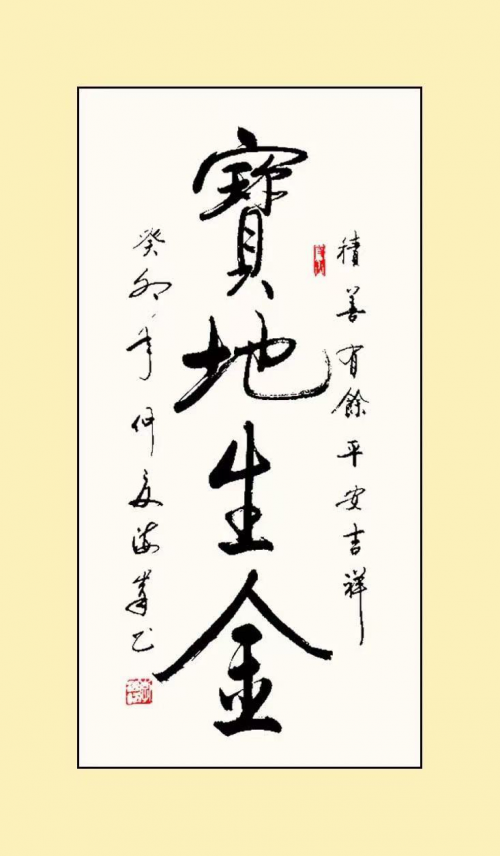 積善有餘平安吉祥
寶地生金
癸卯年仲夏海峯书